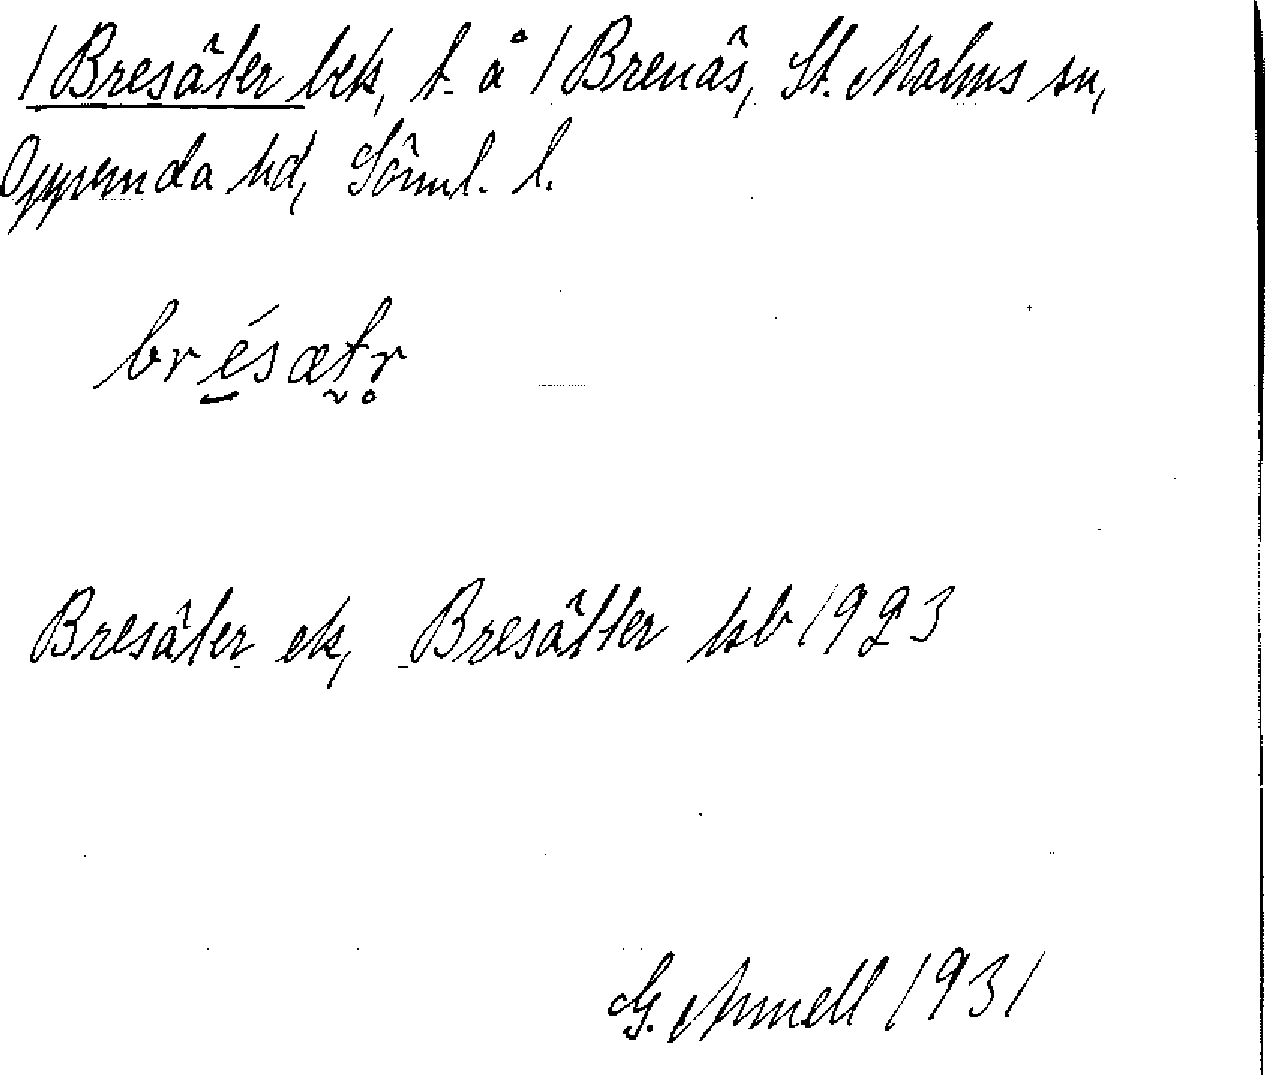 /Bresäter bek, t. å /Brenäs, St. Malms sn,
Oppunda hd, Söml. l.
brésætr
Bresäter ek, Bresätter kb 1923
G. Arnell 1931